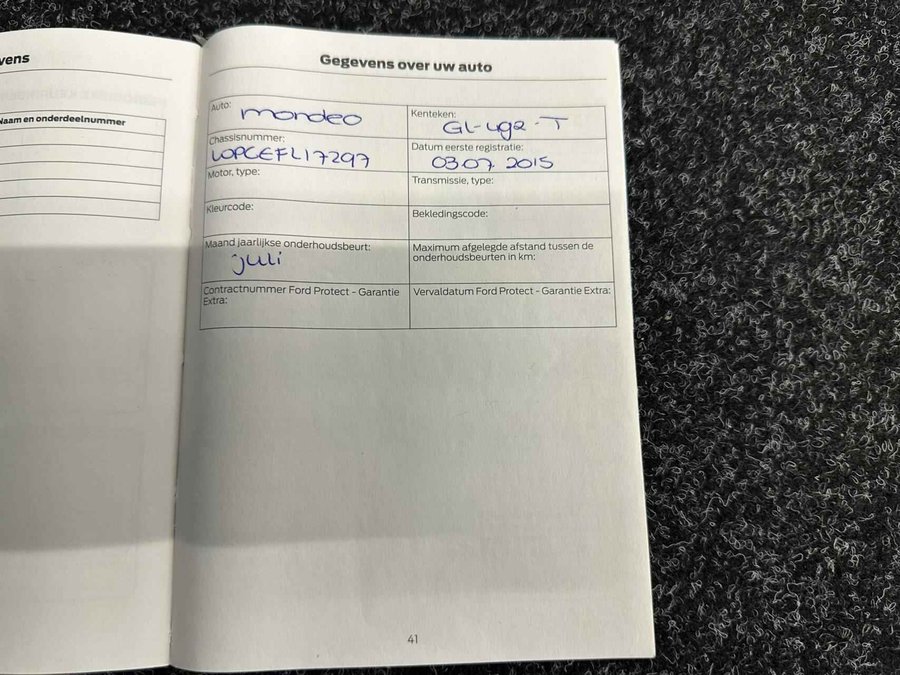 vens
Naam en onderdeelnummer
Gegevens over uw auto
Auto:
mondeo
Kenteken:
GL-492-T
Chassisnummer:
WOPCEFL17297
Datum eerste registratie:
03.07.2015
Motor, type:
Transmissie, type:
Kleurcode:
Bekledingscode:
Maand jaarlijkse onderhoudsbeurt:
juli
Maximum afgelegde afstand tussen de
onderhoudsbeurten in km:
Contractnummer Ford Protect - Garantie
Extra:
Vervaldatum Ford Protect - Garantie Extra:
41